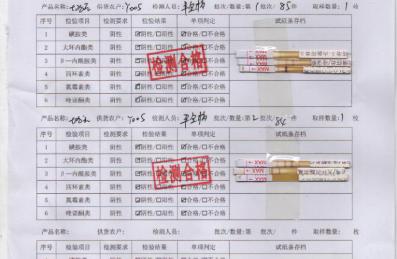 产品名称: 供货农户: Y005 检测人员: 批次/数量:第1批次/85件 取样数量:1枚
序号 检验项目 检测要求 检验结果 单项判定 试纸条存档
1 磺胺类 阴性 ☑阴性/□阳性 ☑合格/□不合格
2 大环内酯类 阴性 ☑阴性/□阳性 ☑合格/□不合格
3 β-内酰胺类 阴性 ☑阴性/□阳性 ☑合格/□不合格
4 四环素类 阴性 ☑阴性/□阳性 ☑合格/□不合格
5 氟霉素类 阴性 ☑阴性/□阳性 ☑合格/□不合格
6 喹诺酮类 阴性 ☑阴性/□阳性 ☑合格/□不合格
检测合格
MAX
产品名称: 供货农户: Y005 检测人员: 批次/数量:第 批次/ 件 取样数量:1枚
序号 检验项目 检测要求 检验结果 单项判定 试纸条存档
1 磺胺类 阴性 ☑阴性/□阳性 ☑合格/□不合格
2 大环内酯类 阴性 ☑阴性/□阳性 ☑合格/□不合格
3 β-内酰胺类 阴性 ☑阴性/□阳性 ☑合格/□不合格
4 四环素类 阴性 ☑阴性/□阳性 ☑合格/□不合格
5 氟霉素类 阴性 ☑阴性/□阳性 ☑合格/□不合格
6 喹诺酮类 阴性 ☑阴性/□阳性 ☑合格/□不合格
检测合格
MAX
产品名称: 供货农户: 检测人员: 批次/数量:第 批次/ 件 取样数量: 枚
序号 检验项目 检测要求 检验结果 单项判定 试纸条存档